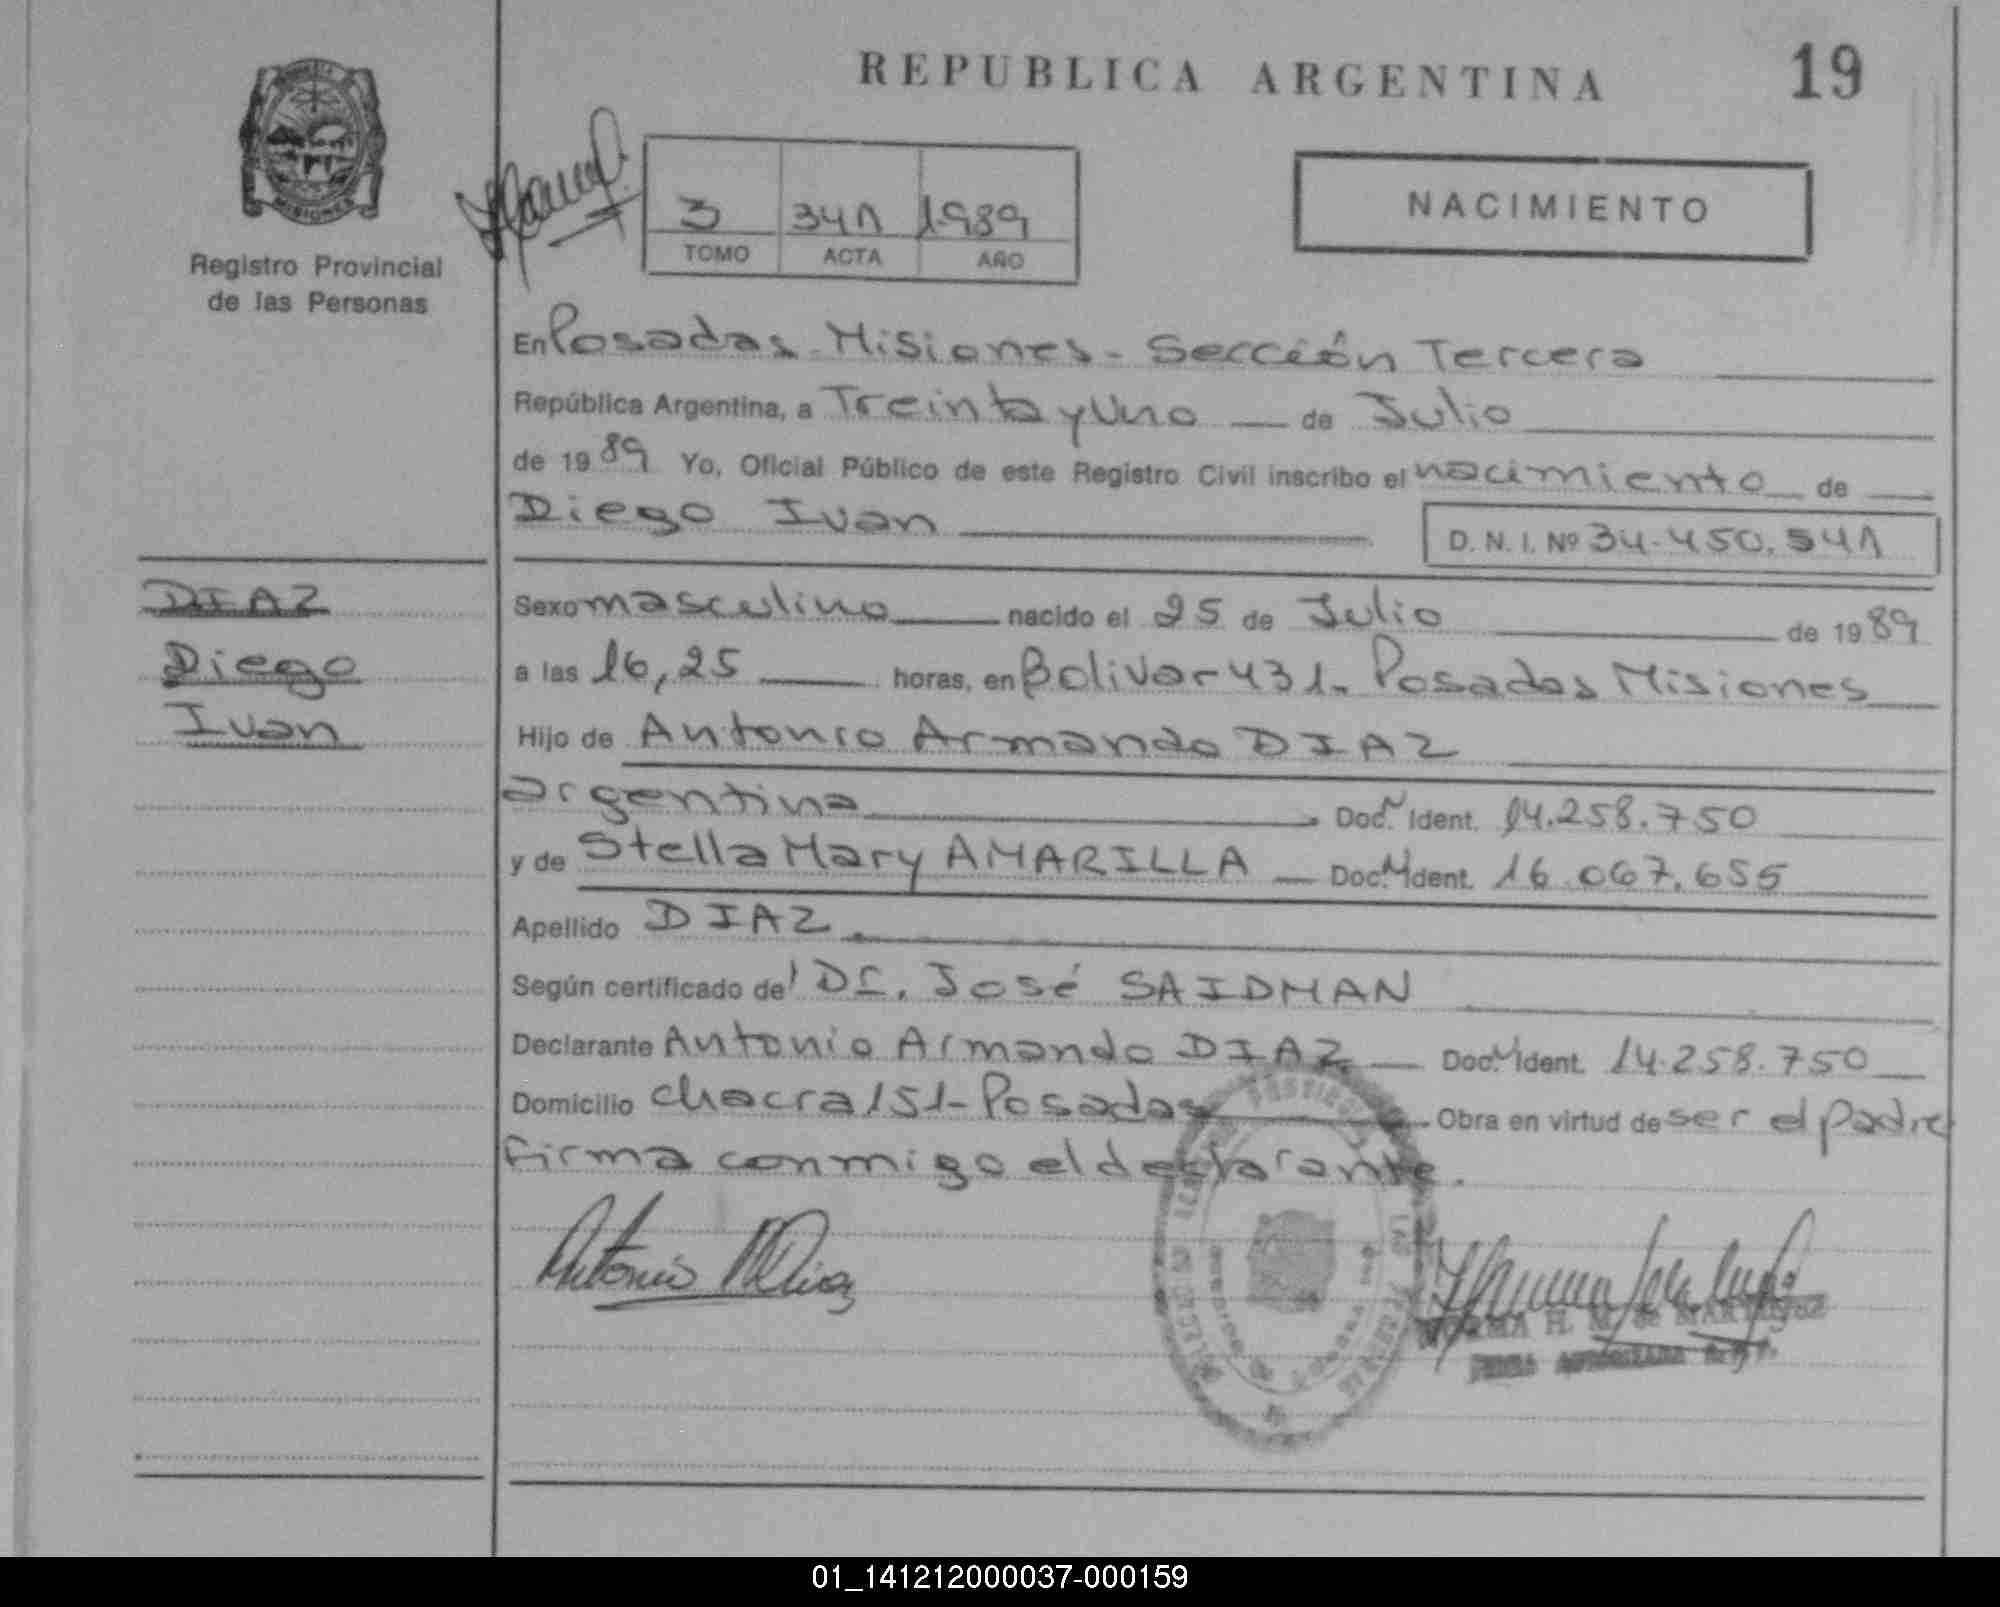 REPUBLICA ARGENTINA
19
MISIONES
Registro Provincial
de las Personas
3 341 1989
TOMO ACTA AÑO
NACIMIENTO
En Posadas - Misiones - Sección Tercera
República Argentina, a Treinta y Uno de Julio
de 1989 Yo, Oficial Público de este Registro Civil inscribo el nacimiento de
Diego Ivan
D. N. I. Nº 34.450.541
DIAZ
Diego
Ivan
Sexo masculino nacido el 25 de Julio de 1989
a las 16,25 horas, en Bolivar 431. Posadas Misiones
Hijo de Antonio Armando DIAZ
argentina Doc. Ident. 14.258.750
y de Stella Mary AMARILLA Doc. Ident. 16.067.655
Apellido DIAZ
Según certificado de Dr. José SAIDMAN
Declarante Antonio Armando DIAZ Doc. Ident. 14.258.750
Domicilio Chacra 151 - Posadas Obra en virtud de ser el padre
firma conmigo el declarante.
Antonio
NORMA H. M. de MARTINEZ
01_141212000037-000159